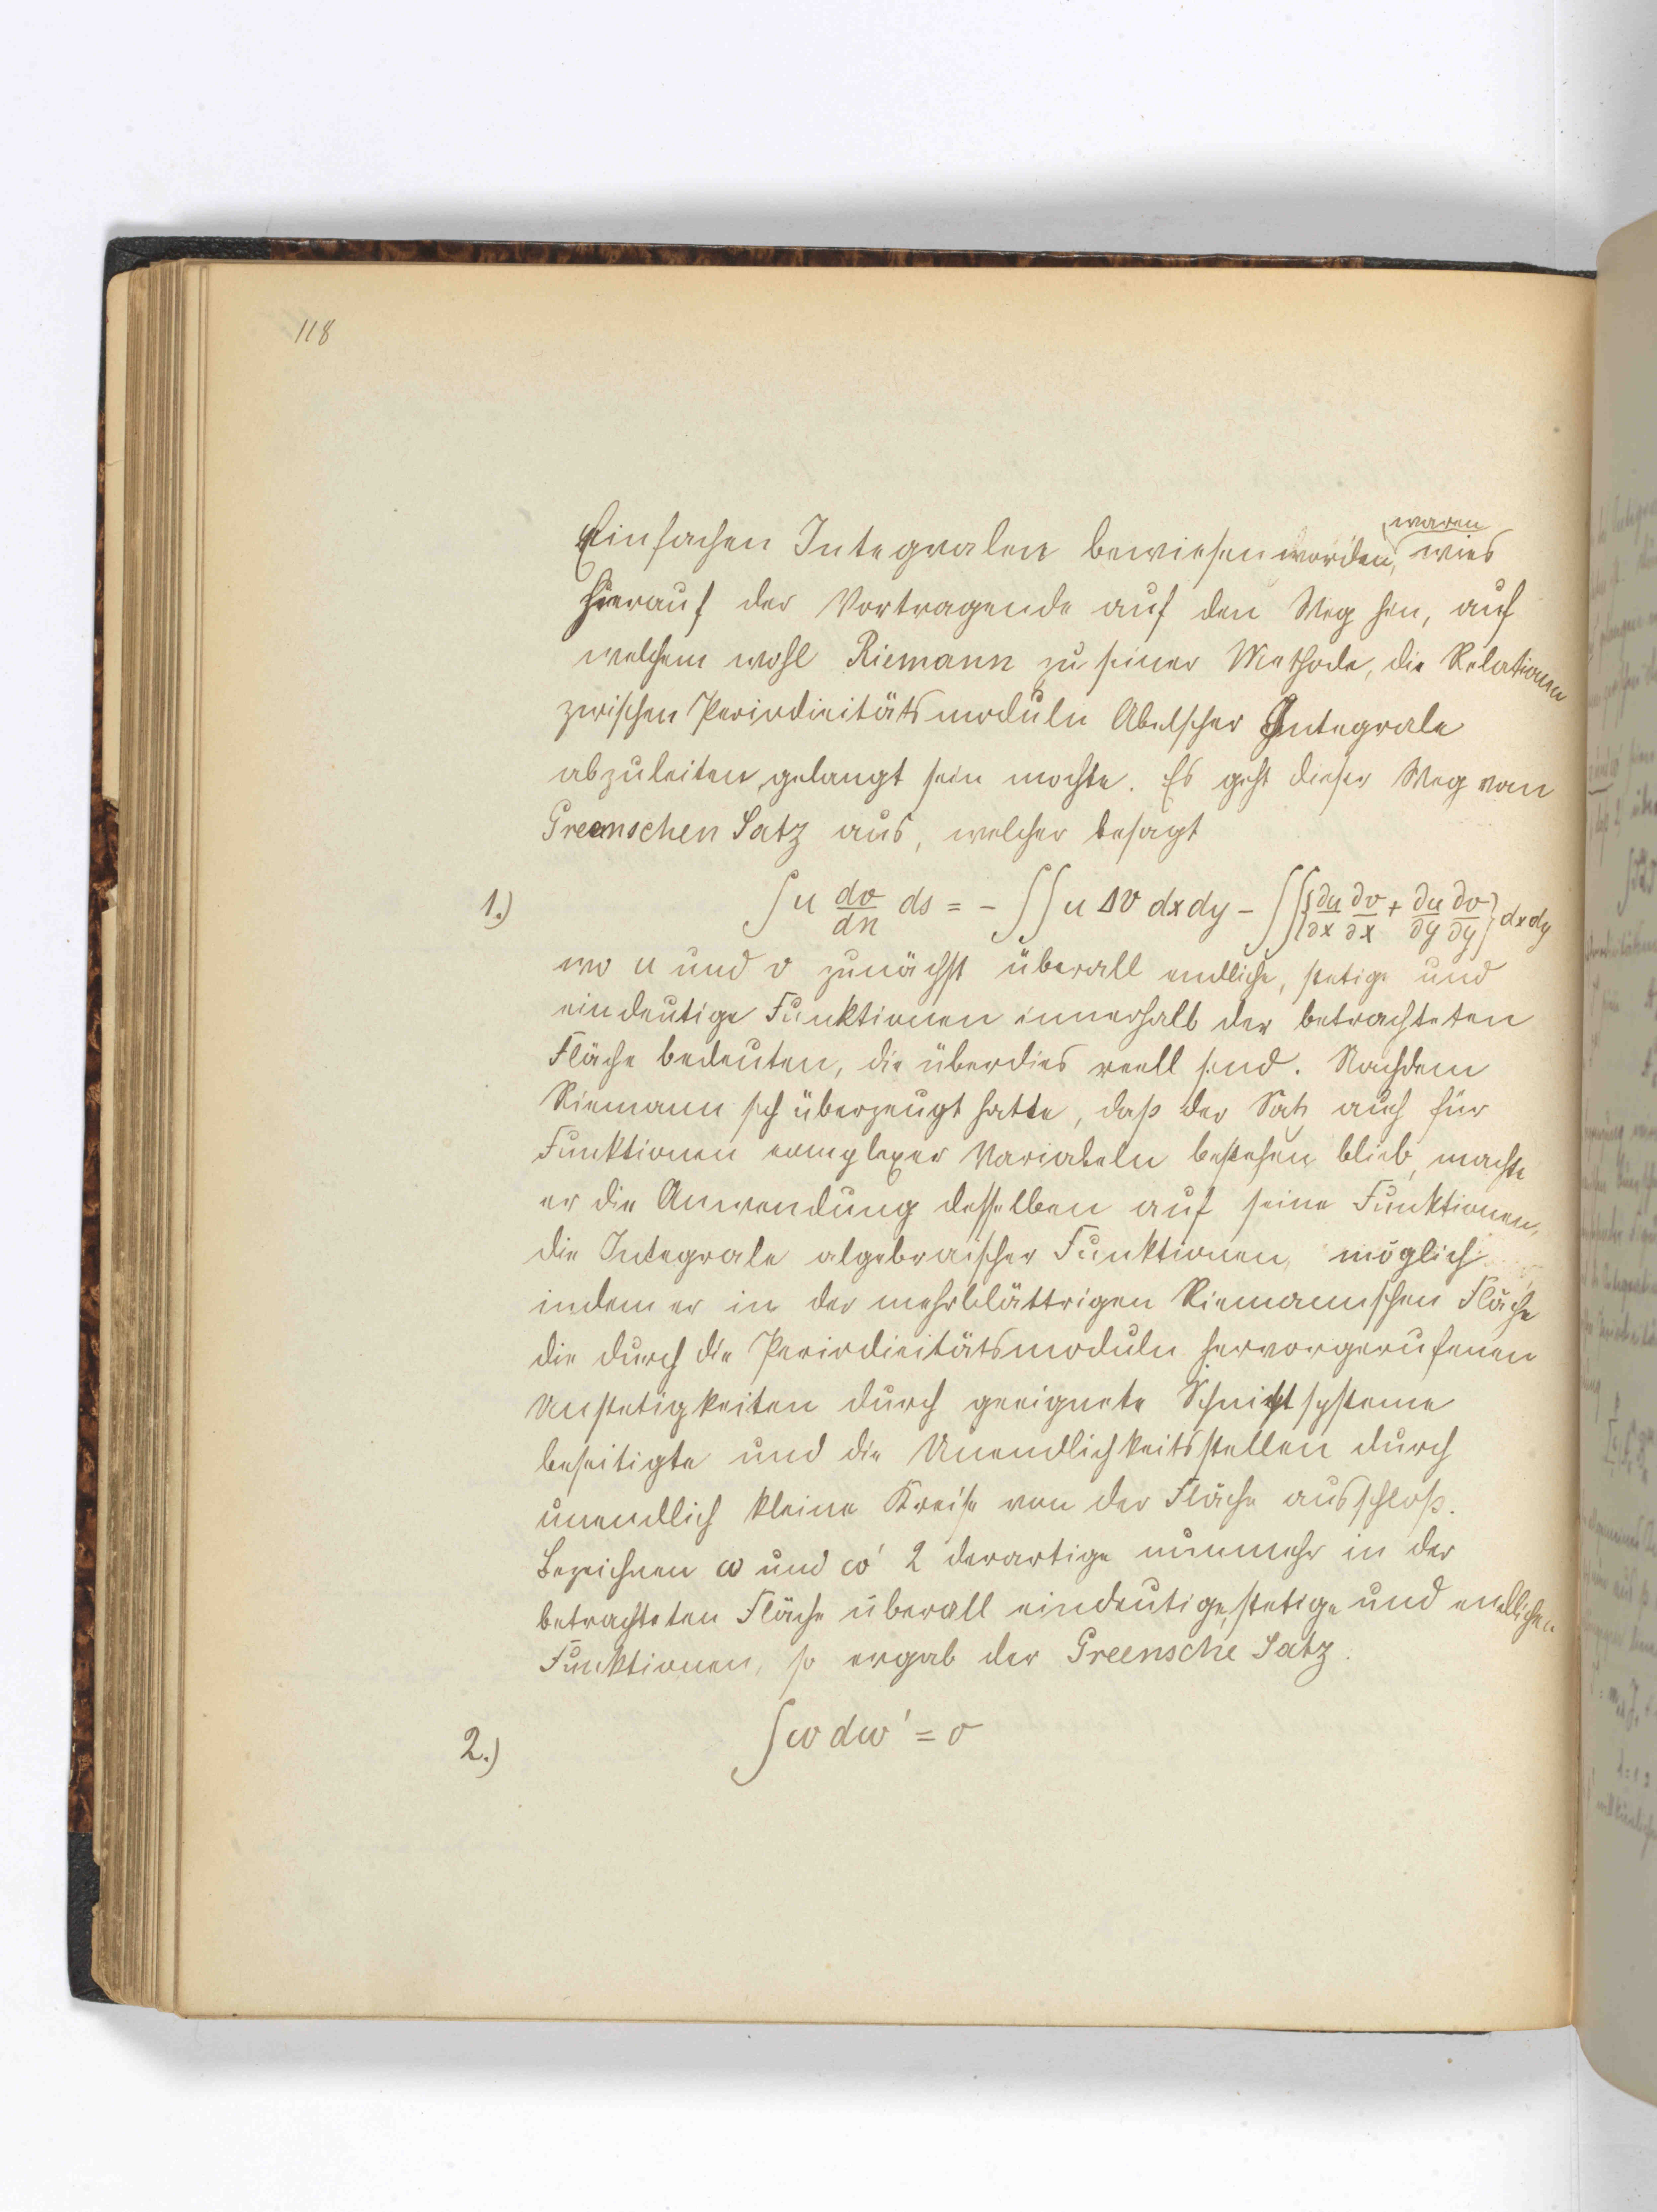 118
Einfachen Integralen bewiesen worden waren, wies
hierauf der Vortragende auf den Weg hin, auf
welchem wohl Riemann zu seiner Methode, die Relationen
zwischen Periodicitätsmoduln Abelscher Integrale
abzuleiten, gelangt sein mochte. Es geht dieser Weg von
Greenschen Satz aus, welcher besagt
1.) ∫ u dv/dn ds = - ∫∫ u Δv dxdy - ∫∫ {∂u/∂x ∂v/∂x + ∂u/∂y ∂v/∂y} dxdy
wo u und v zunächst überall endliche, stetige und
eindeutige Funktionen innerhalb der betrachteten
Fläche bedeuten, die überdies reell sind. Nachdem
Riemann sich überzeugt hatte, daß der Satz auch für
Funktionen complexer Variabeln bestehen blieb, machte
er die Anwendung desselben auf seine Funktionen,
die Integrale algebraischer Funktionen, möglich
indem er in der mehrblättrigen Riemannschen Fläche
die durch die Periodicitätsmoduln hervorgerufenen
Unstetigkeiten durch geeignete Schnittsysteme
beseitigte und die Unendlichkeitsstellen durch
unendlich kleine Kreise von der Fläche ausschloß.
Bezeichnen ω und ω' 2 derartige nunmehr in der
betrachteten Fläche überall eindeutige, stetige und endlichen
Funktionen, so ergab der Greensche Satz.
2.) ∫ω dω' = 0